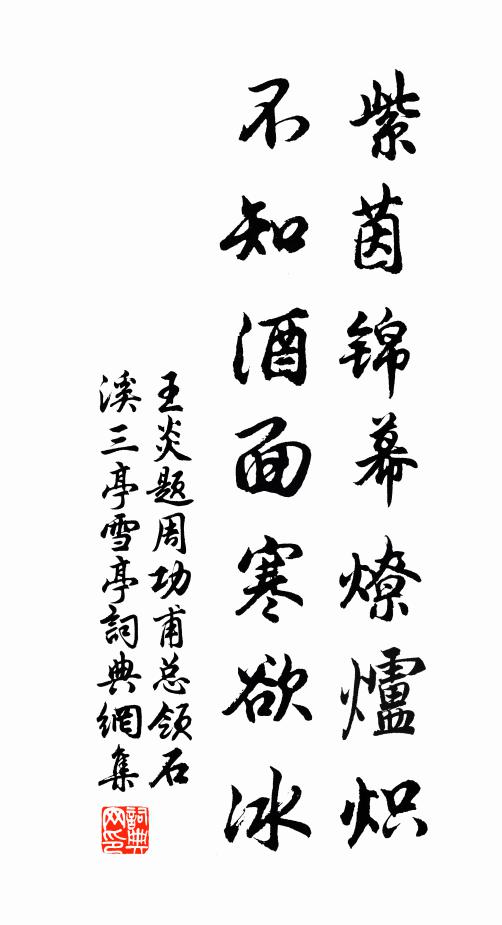 紫茵锦幕燎爐炽
不知酒面寒欲冰
王炎题周功甫总领石
溪三亭雪亭詞典網集
詞典
网印